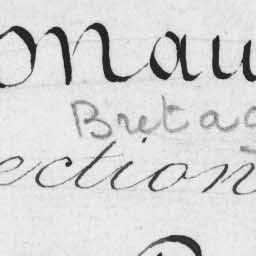 onau
Bretag
ection